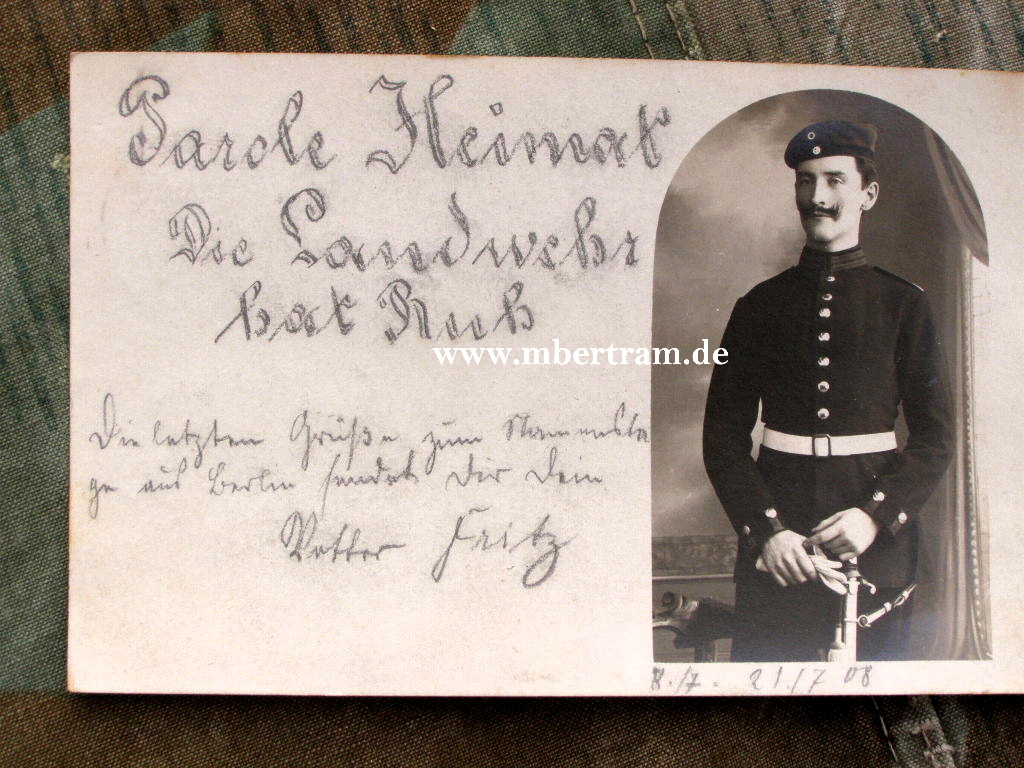 Parole Heimat
Die Landwehr
hat Ruh
www.mbertram.de
Die letzten Grüße zum Namensta
ge aus Berlin sendet Dir Dein
Vetter Fritz
8./7. 21./7 08